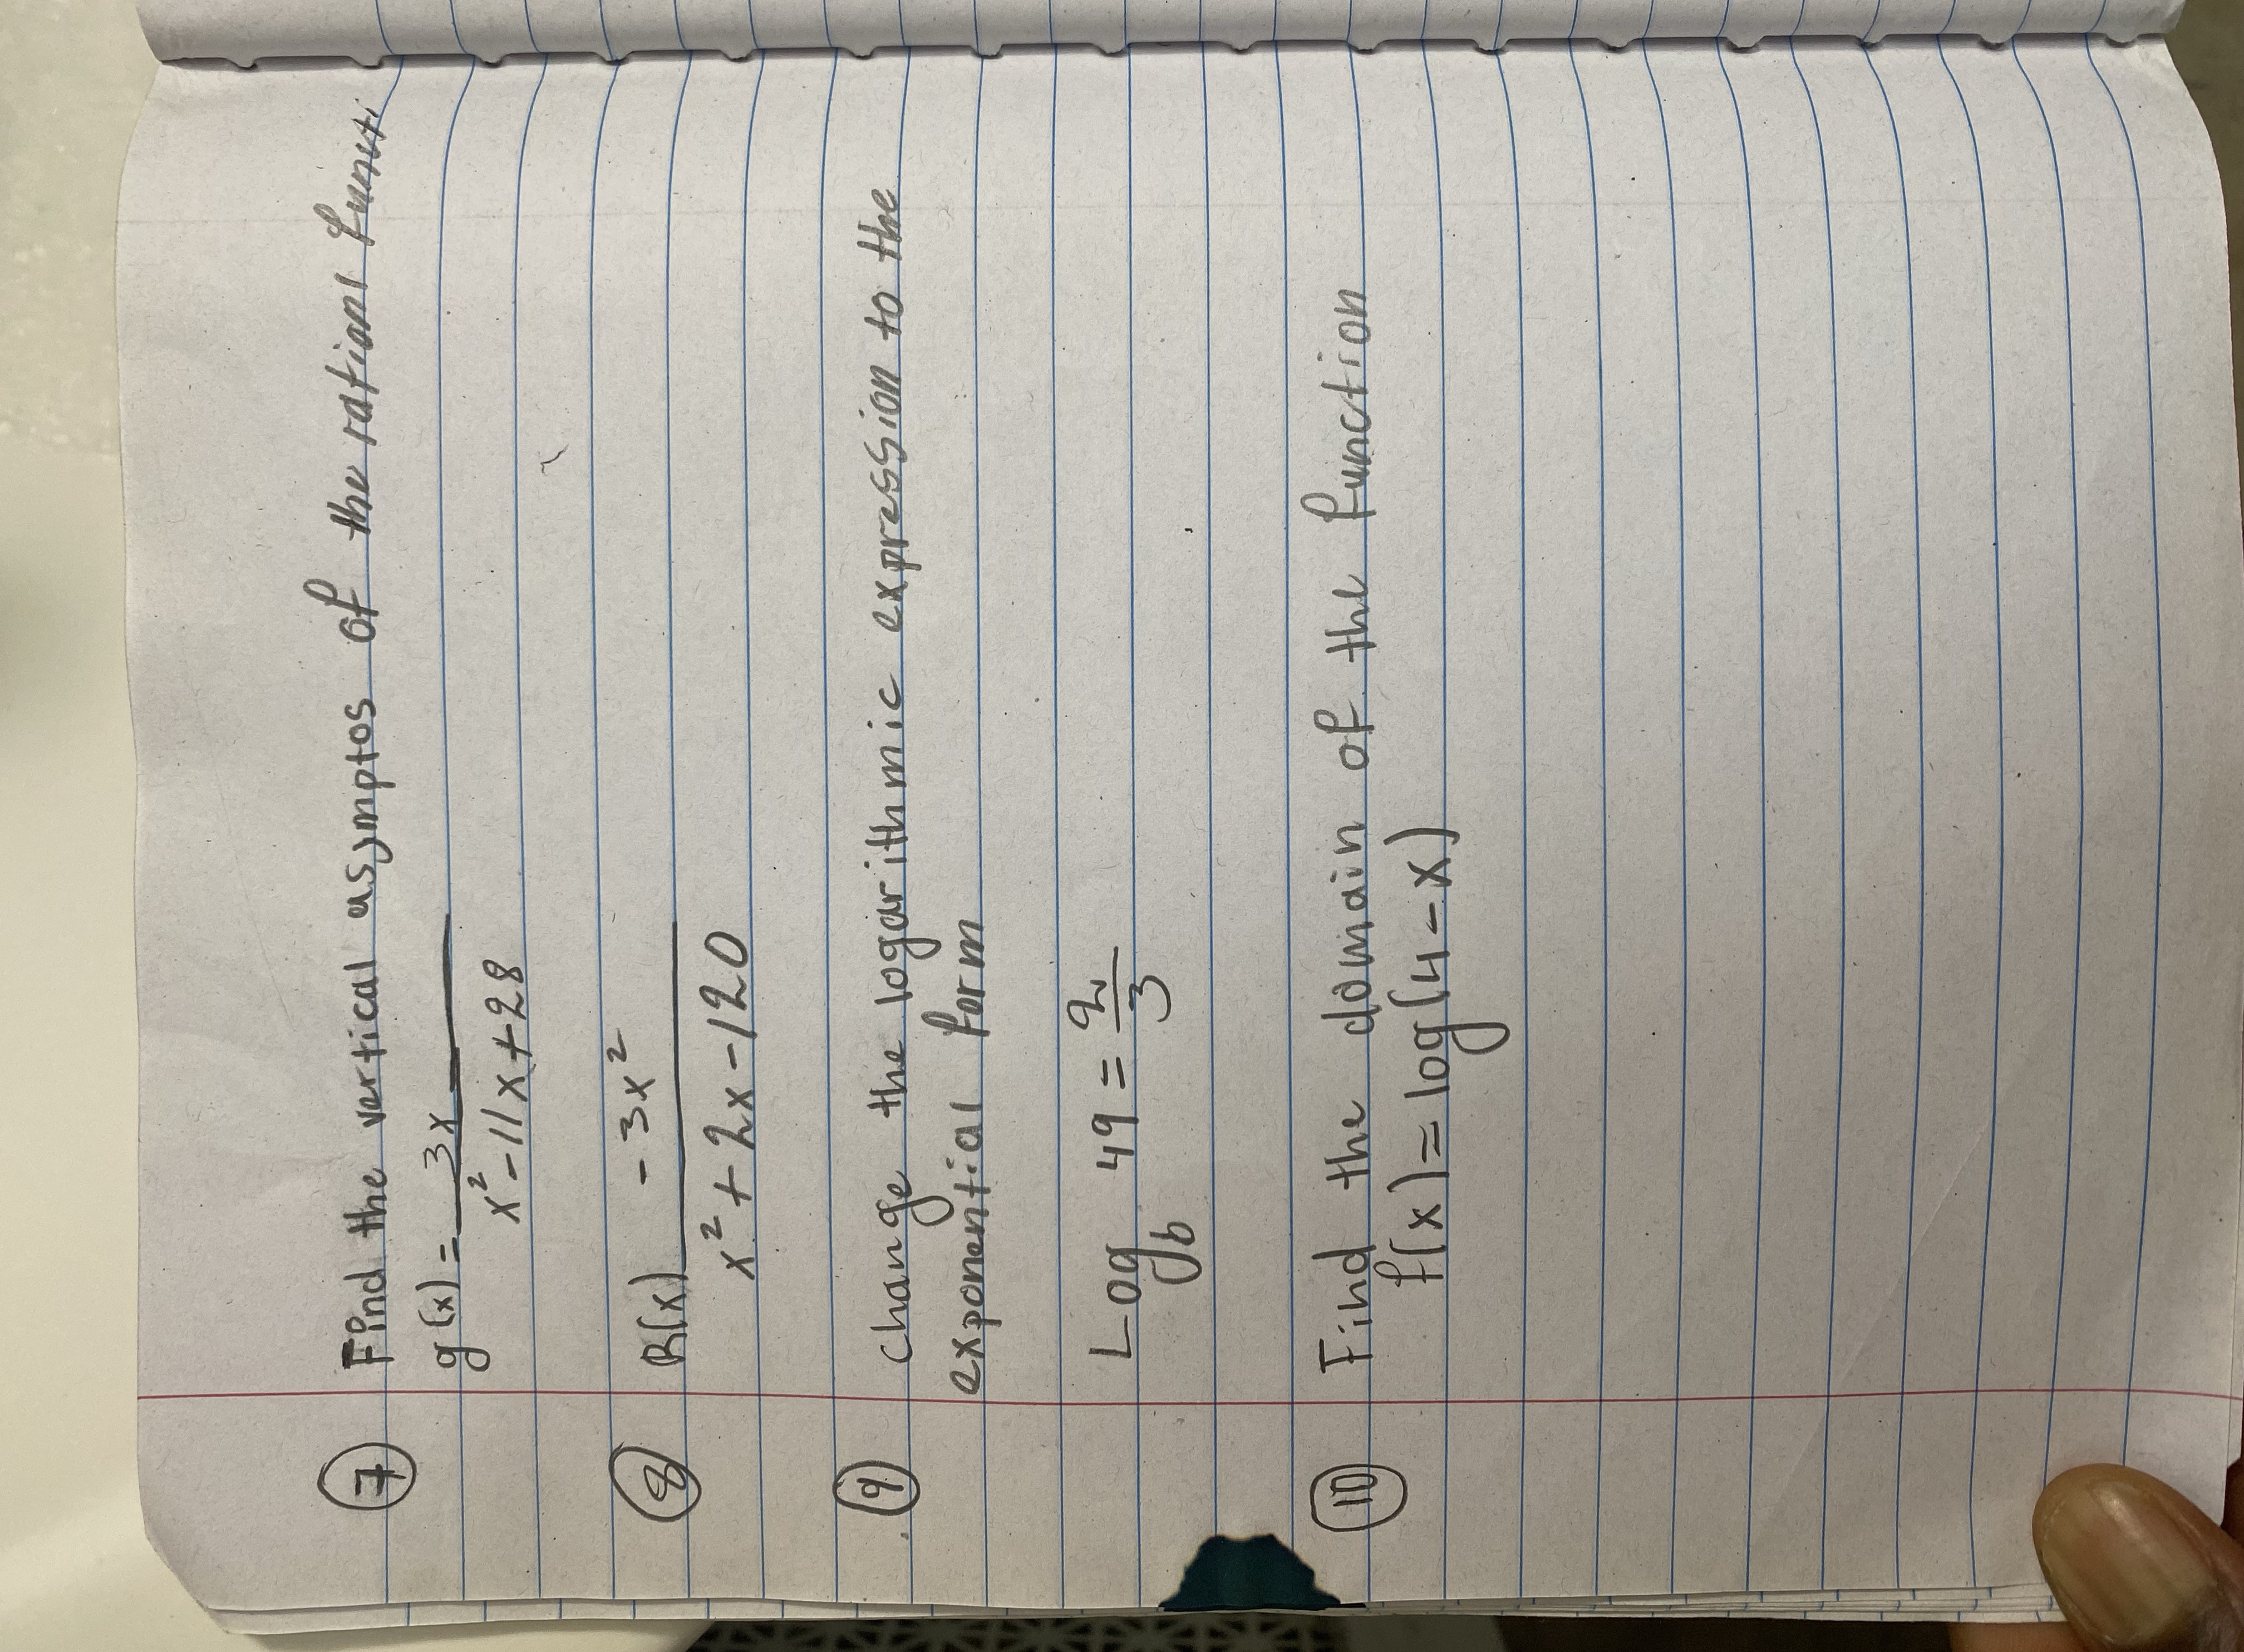 7 Find the vertical asymptos of the rational funct.
g(x) = 3x
x² - 11x + 28
8 R(x) - 3x²
x² + 2x - 120
9 change the logarithmic expression to the
exponential form
Log_b 49 = 2/3
10 Find the domain of the function
f(x) = log(4 - x)